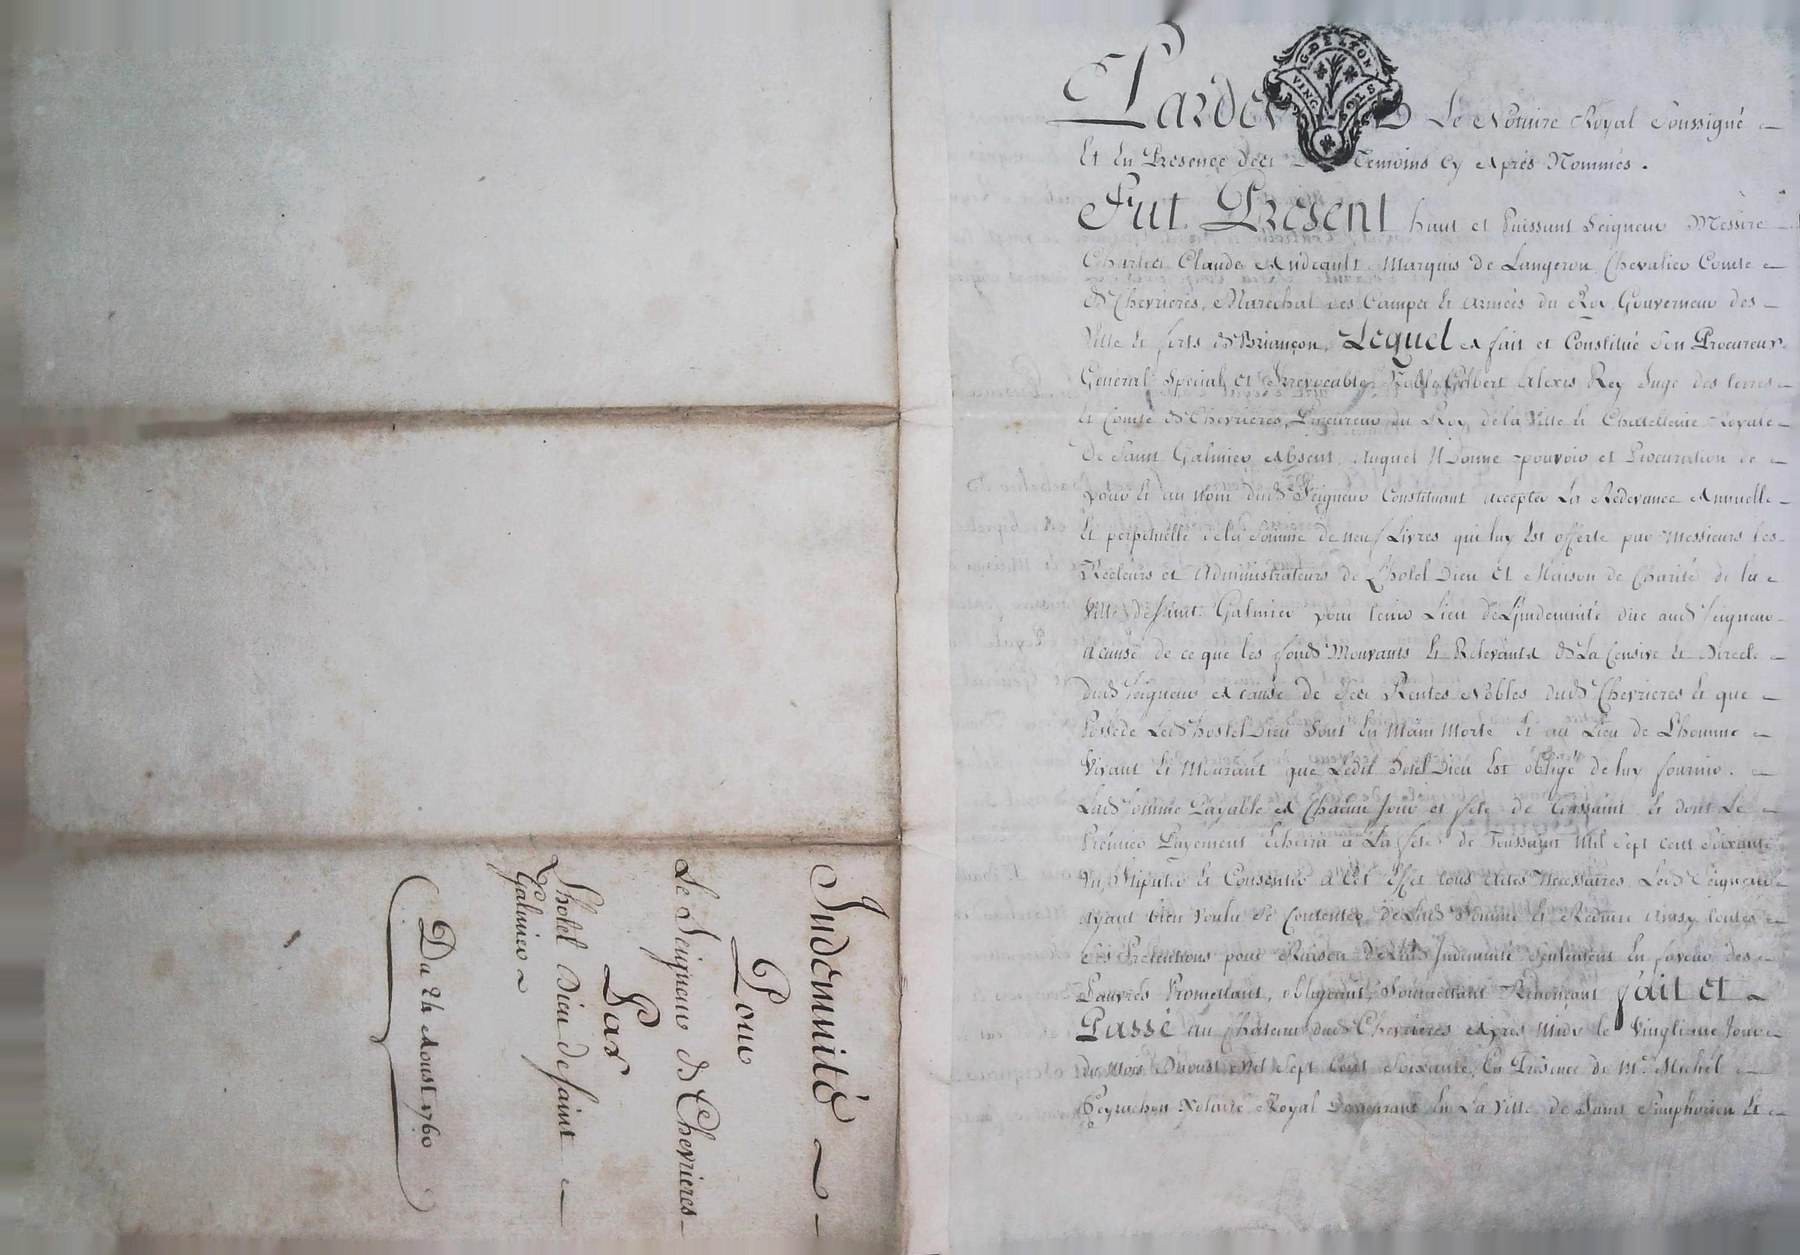 Indemnité
Pour
Le Seigneur de Chevrieres
Par
Lhotel Dieu de saint
Galmier
Du 24 Aoust 1760
G. DE LYON
VING SOLS
Pardevant Le Notaire Royal Soussigné
Et En Presence des Temoins cy Aprés Nommés.
Fut Présent haut et Puissant Seigneur Messire
Charles Claude Andeault Marquis de Langeron Chevalier Comte
de Chevrieres, Maréchal des Camps et Armées du Roy Gouverneur des
Ville et forts de Briançon, Lequel A fait et Constitué Son Procureur
Général Special et Irrevocable, Noble Gilbert Alexis Rey Juge des terres
et Comté de Chevrieres, Procureur du Roy de la Ville et Chatellenie Royale
De Saint Galmier Absent Auquel Il Donne pouvoir et Procuration de
pour et au Nom dud Seigneur Constituant accepter La Redevance Annuelle
Et perpetuelle de la Somme de neuf Livres qui luy Est offerte par Messieurs Les
Recteurs et Administrateurs de L'hotel Dieu Et Maison de Charité de la
Ville de Saint Galmier pour tenir Lieu de L'Indemnité due aud Seigneur
A cause de ce que les fonds Mouvants Et Relevants de La Censive et Directe
dud Seigneur A cause de Ses Rentes Nobles dud Chevrieres et que
Possede Led hostel Dieu sont En Main Morte et au Lieu de L'homme
Vivant et Mourant que Ledit hotel Dieu Est obligé de luy fournir.
Lad Somme Payable A Chacun Jour et fete de Toussaint et dont Le
Prémier Payement Echerra à La fete de Toussaint Mil Sept cent Soixante
En Stipuler et Consentir A Cet Effet tous Actes Necessaires Led Seigneur
Ayant bien Voulu Se Contenter de Lad Somme Et Reduire Ainsy toutes
Les Pretentions pour Raison de Lad Indemnité Seulement En faveur des
Pauvres Promettant, obligeant, Soumettant Renonçant fait et
Passé au Chateau dud Chevrieres Aprés Midy le Vingtieme Jour
du Mois D'Aoust Mil Sept Cent Soixante, En Présence de Mr. Michel
Peyrachon Notaire Royal Demeurant En La Ville de Saint Simphorien Et